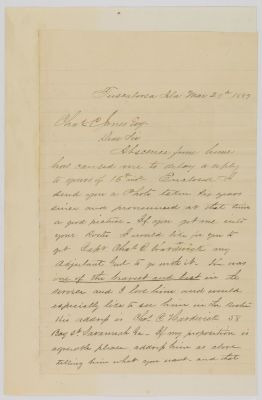 Tuscaloosa Ala Mar 20th 1889
Chas. C. Jones Esq
Dear Sir
Abscence from home
has caused me to delay a reply
to yours of 15th inst. Enclosed I
send you a Photo taken six years
since and pronounced at that time
a good picture. If you get me into
your Roster I would like for you to
get Capt Chas C Hardwick my
Adjutant Genl to go with it. him was
one of the bravest and best in the
service and I love him and would
especially like to see him in the
his address is Chas C Hardwick 58
Bay St Savannah Ga. If my proposition is
agreeable please address him as above
telling him what you want and that